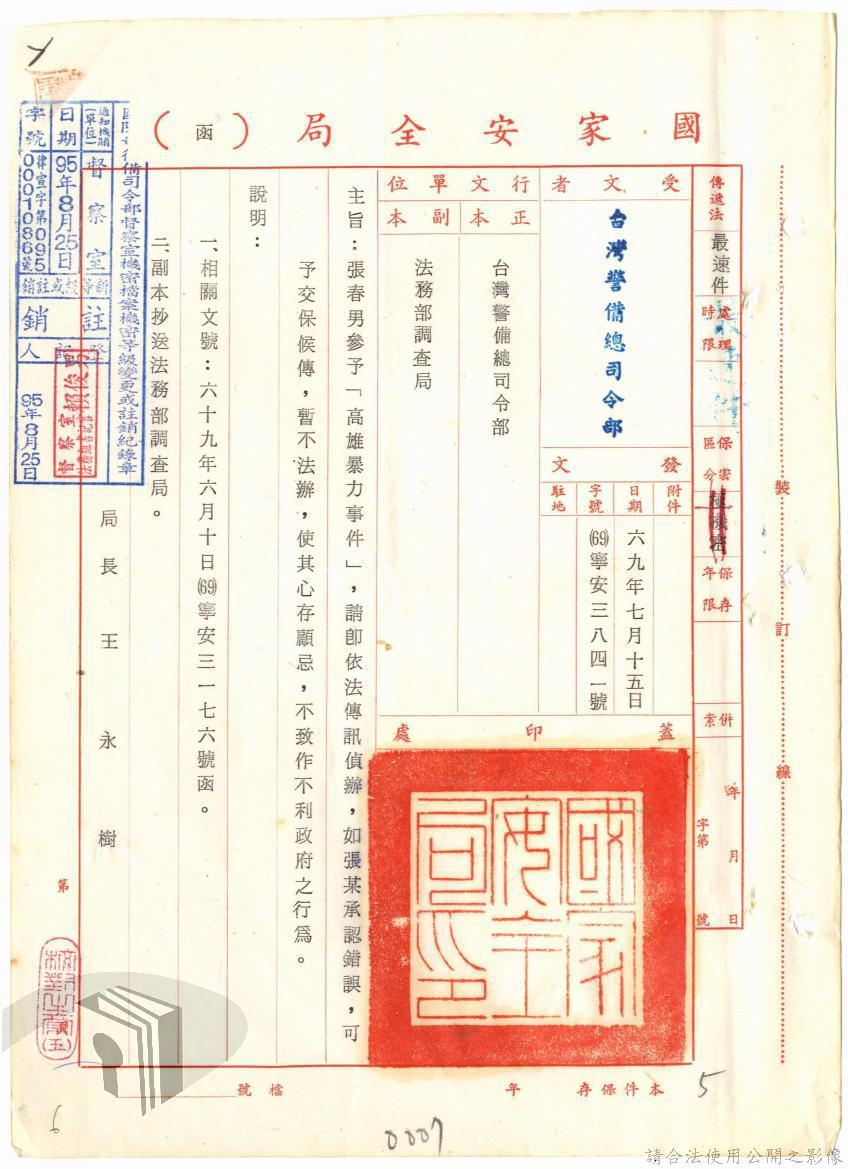 國家安全局（函）
傳遞法
最速件
處理時限
保密區分
極機密
保存年限
併案
年 月 日
字第 號
受文者
台灣警備總司令部
發文
附件
日期
六九年七月十五日
字號
(69)寧安三八四一號
駐地
行文單位
正本
台灣警備總司令部
副本
法務部調查局
蓋印處
國家安全局印
主旨：張春男參予「高雄暴力事件」，請即依法傳訊偵辦，如張某承認錯誤，可
予交保候傳，暫不法辦，使其心存顧忌，不致作不利政府之行為。
說明：
一、相關文號：六十九年六月十日(69)寧安三一七六號函。
二、副本抄送法務部調查局。
局長 王永樹
裝 訂 線
備司令部督察室機密檔案機密等級變更或註銷紀錄章
通知機關(單位)
督察室
日期
95年8月25日
字號
律宣字第095
0001086號
新等級或註銷
註銷
登記人
督察室
95年8月25日
第
本件保存 年
檔號
5
6
0007
請合法使用公開之影像